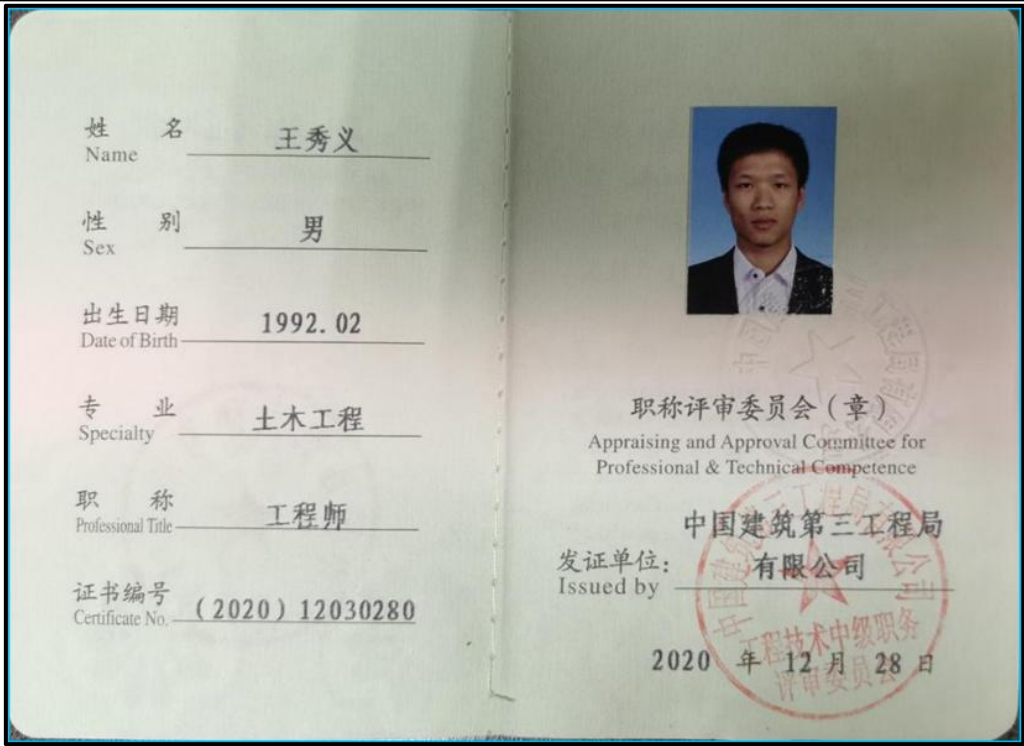 姓 名 王秀义
Name
性 别 男
Sex
出生日期 1992.02
Date of Birth
专 业 土木工程
Specialty
职 称 工程师
Professional Title
证书编号 (2020) 12030280
Certificate No.
职称评审委员会（章）
Appraising and Approval Committee for
Professional & Technical Competence
中国建筑第三工程局
发证单位： 有限公司
Issued by
2020 年 12 月 28 日
中国建筑第三工程局有限公司
工程技术中级职务
评审委员会